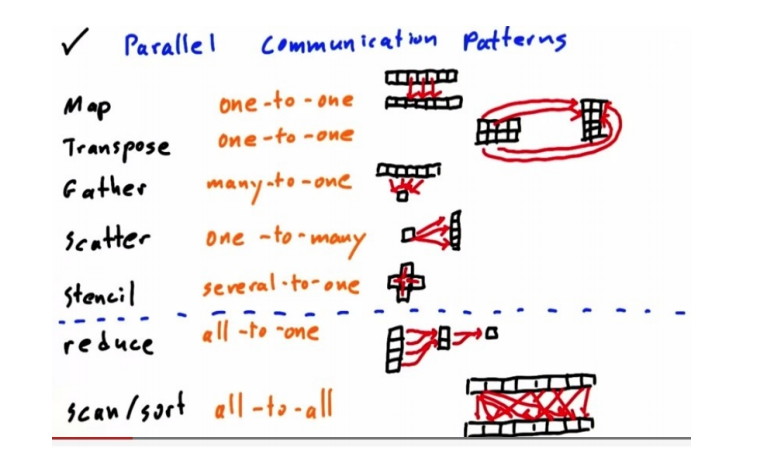 ✓ Parallel Communication Patterns
Map one-to-one
Transpose one-to-one
Gather many-to-one
Scatter one-to-many
Stencil several-to-one
reduce all-to-one
scan/sort all-to-all